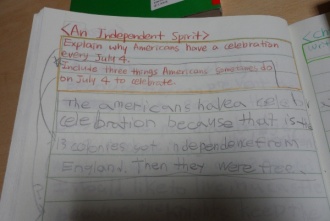 <An Independent Spirit>
Explain why Americans have a celebration
every July 4.
Include three things Americans sometimes do
on July 4 to celebrate.
The americans have a celeb
celebration because that is the
13 colonies got independence from
England. Then they were free.